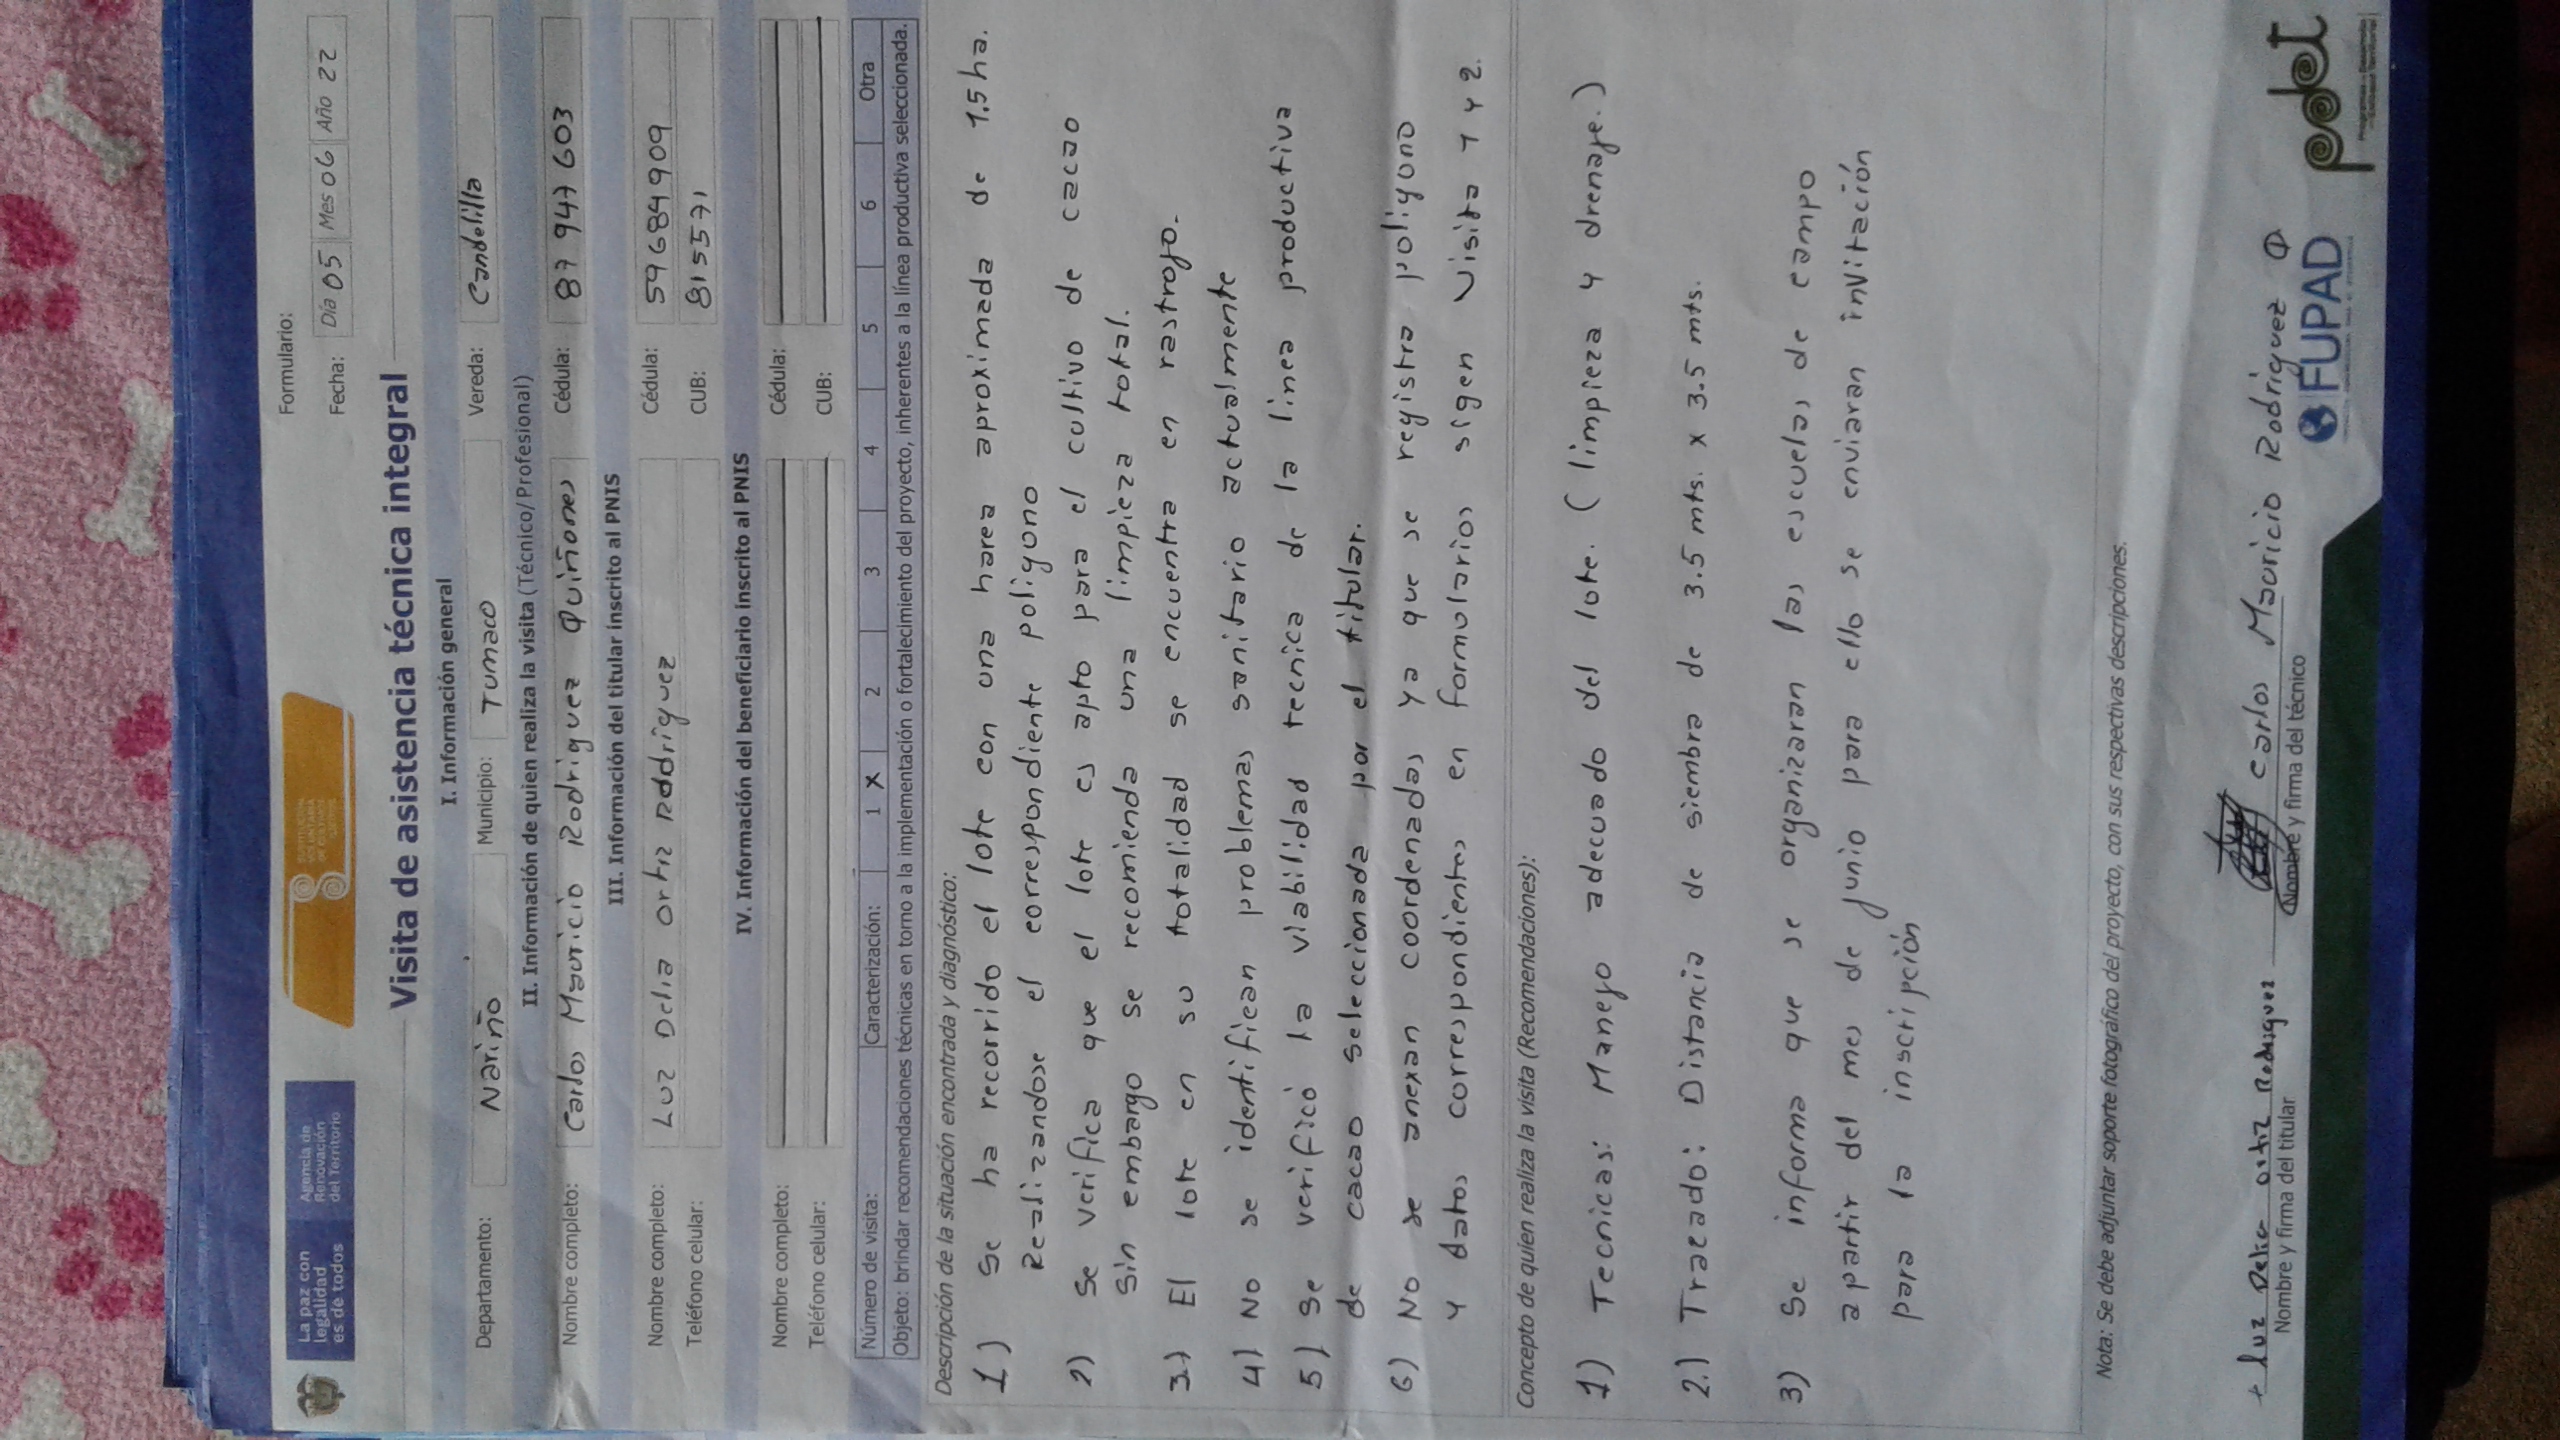 La paz con
legalidad
es de todos
Agencia de
Renovación
del Territorio
Formulario:
Fecha: Día 05 Mes 06 Año 22
Visita de asistencia técnica integral
I. Información general
Departamento: Nariño Municipio: Tumaco Vereda: Candelilla
II. Información de quien realiza la visita (Técnico/Profesional)
Nombre completo: Carlos Mauricio Rodriguez Quiñones Cédula: 87 947 603
III. Información del titular inscrito al PNIS
Nombre completo: Luz Delia ortiz Rodriguez Cédula: 59684909
Teléfono celular: CUB: 815571
IV. Información del beneficiario inscrito al PNIS
Nombre completo: Cédula:
Teléfono celular: CUB:
Número de visita: Caracterización: 1 X 2 3 4 5 6 Otra
Objeto: brindar recomendaciones técnicas en torno a la implementación o fortalecimiento del proyecto, inherentes a la línea productiva seleccionada.
Descripción de la situación encontrada y diagnóstico:
1) Se ha recorrido el lote con una harea aproximada de 1.5 ha.
Realizandose el correspondiente poligono
2) Se verifica que el lote es apto para el cultivo de cacao
Sin embargo se recomienda una limpieza total.
3.) El lote en su totalidad se encuentra en rastrojo.
4) No se identifican problemas sanitario actualmente
5) Se verificó la viabilidad tecnica de la linea productiva
de cacao seleccionada por el titular.
6) No se anexan coordenadas ya que se registra poligono
y datos correspondientes en formularios sigen visita 1 y 2.
Concepto de quien realiza la visita (Recomendaciones):
1) Tecnicas: Manejo adecuado del lote. (limpieza y drenaje.)
2.) Trazado: Distancia de siembra de 3.5 mts. x 3.5 mts.
3) Se informa que se organizaran las escuelas de campo
apartir del mes de junio para ello se enviaran invitación
para la inscripción
Nota: Se debe adjuntar soporte fotográfico del proyecto, con sus respectivas descripciones.
+ luz Delia ortiz Rodriguez
Nombre y firma del titular
Carlos Mauricio Rodriguez Q
Nombre y firma del técnico
FUPAD
pdet